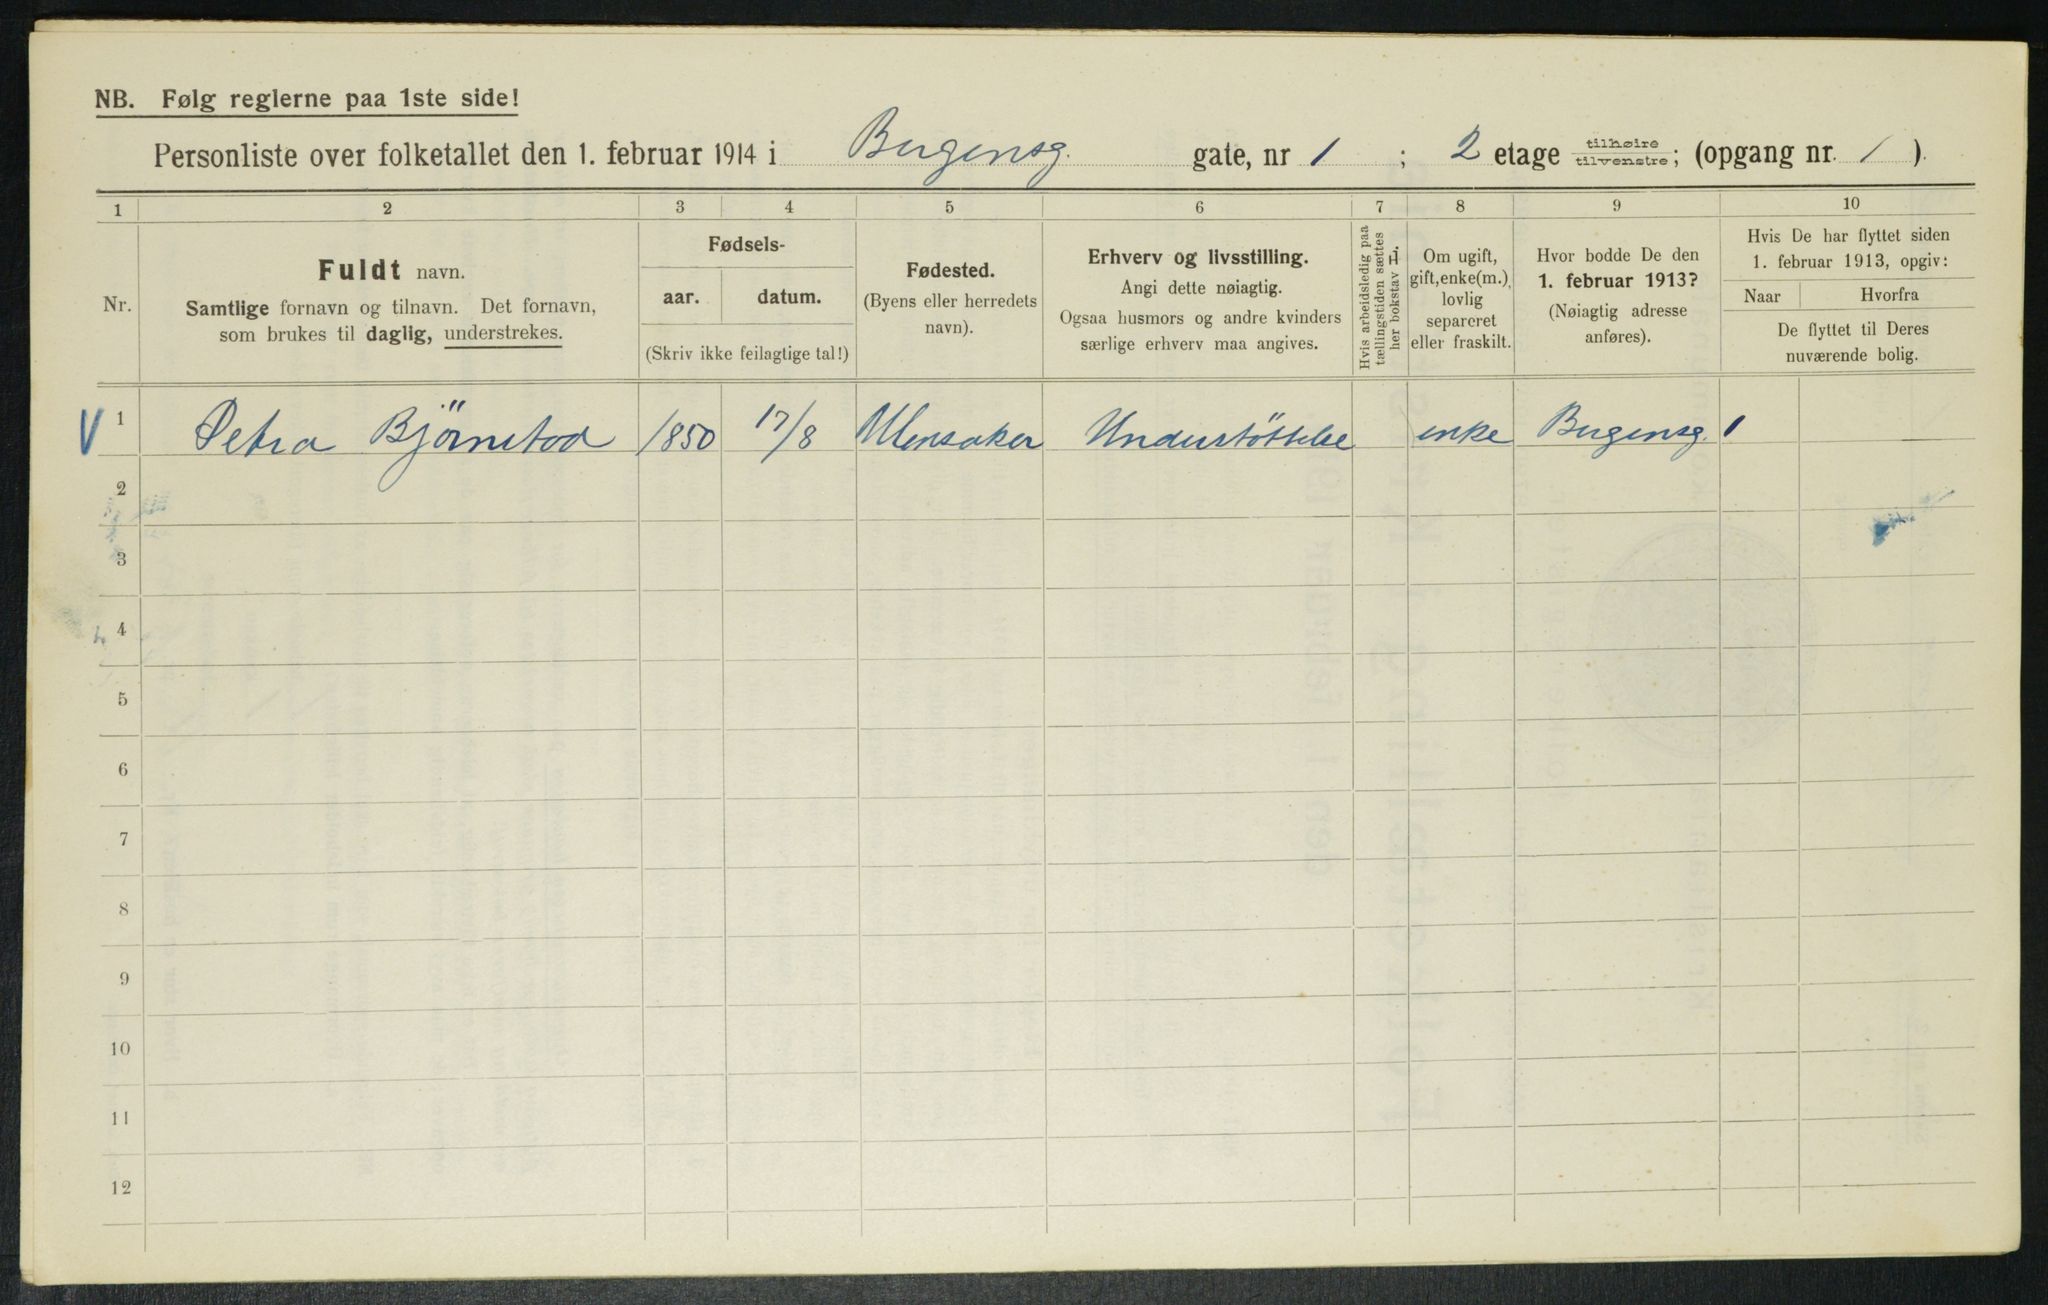 NB. Følg reglerne paa 1ste side!
Personliste over folketallet den 1. februar 1914 i Bergensg. gate, nr 1 ; 2 etage tilhøire tilvenstre; (opgang nr. 1 ).
1 2 3 4 5 6 7 8 9 10
Nr.
Fuldt navn.
Samtlige fornavn og tilnavn. Det fornavn,
som brukes til daglig, understrekes.
Fødsels-
aar. datum.
(Skriv ikke feilagtige tal!)
Fødested.
(Byens eller herredets
navn).
Erhverv og livsstilling.
Angi dette nøiagtig.
Ogsaa husmors og andre kvinders
særlige erhverv maa angives.
Hvis arbeidsledig paa
tællingstiden sættes
her bokstav L.
Om ugift,
gift, enke(m.),
lovlig
separeret
eller fraskilt.
Hvor bodde De den
1. februar 1913?
(Nøiagtig adresse
anføres).
Hvis De har flyttet siden
1. februar 1913, opgiv:
Naar Hvorfra
De flyttet til Deres
nuværende bolig.
V 1 Petra Björnstad 1850 17/8 Ullensaker Understöttelse enke Bergensg. 1
2
3
4
5
6
7
8
9
10
11
12